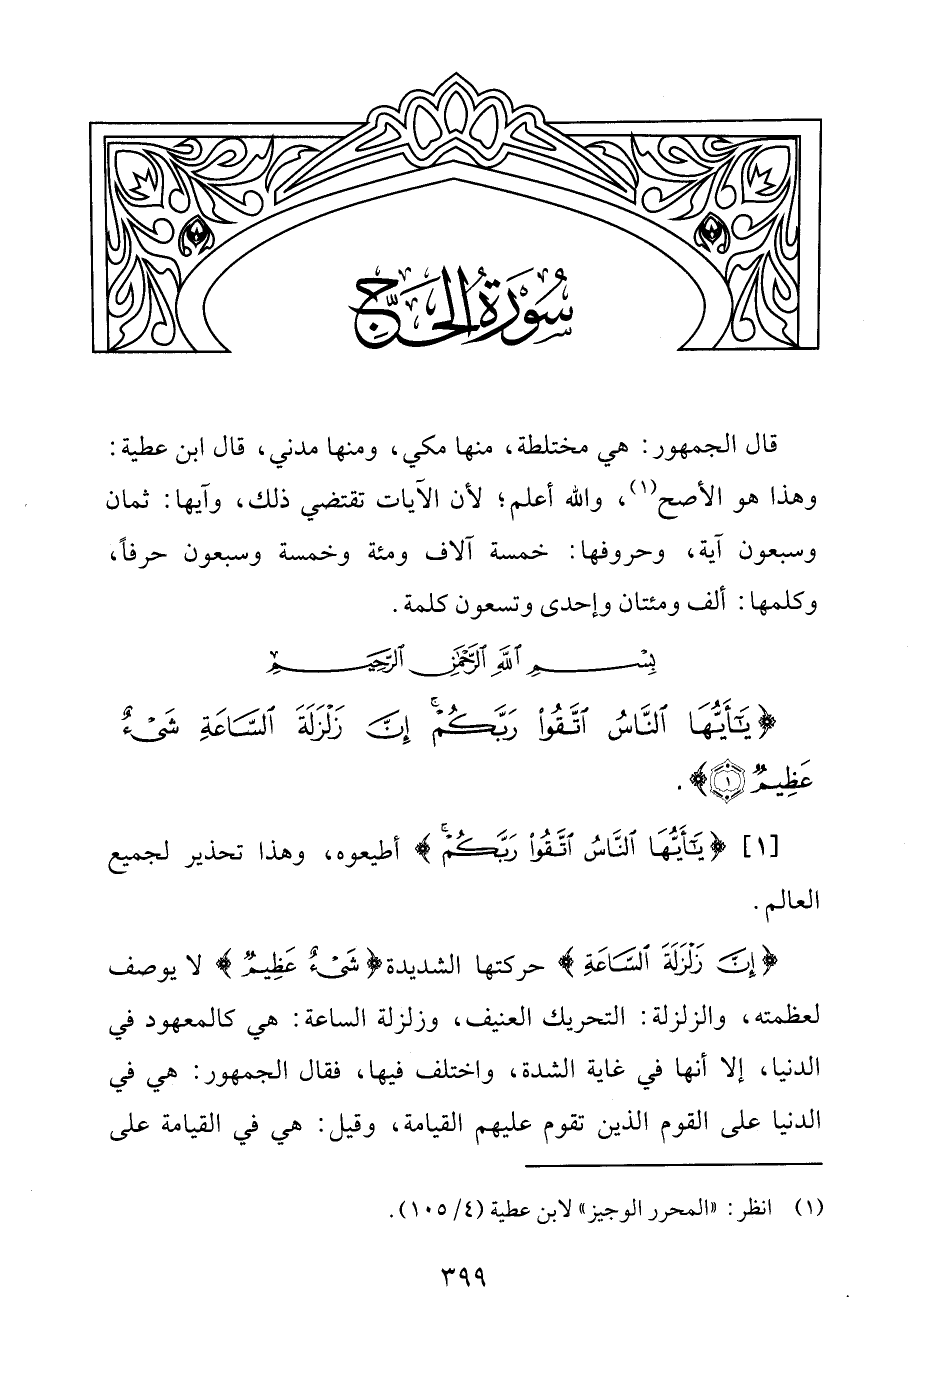 سُورَةُ الحَجِّ
قال الجمهور: هي مختلطة، منها مكي، ومنها مدني، قال ابن عطية:
وهذا هو الأصح(١)، والله أعلم؛ لأن الآيات تقتضي ذلك، وآيها: ثمان
وسبعون آية، وحروفها: خمسة آلاف ومئة وخمسة وسبعون حرفاً،
وكلمها: ألف ومئتان وإحدى وتسعون كلمة.
بِسْمِ اللَّهِ الرَّحْمَٰنِ الرَّحِيمِ
﴿يَٰٓأَيُّهَا ٱلنَّاسُ ٱتَّقُوا۟ رَبَّكُمْ ۚ إِنَّ زَلْزَلَةَ ٱلسَّاعَةِ شَىْءٌ
عَظِيمٌ ١﴾.
[١] ﴿يَٰٓأَيُّهَا ٱلنَّاسُ ٱتَّقُوا۟ رَبَّكُمْ ۚ﴾ أطيعوه، وهذا تحذير لجميع
العالم.
﴿إِنَّ زَلْزَلَةَ ٱلسَّاعَةِ﴾ حركتها الشديدة ﴿شَىْءٌ عَظِيمٌ﴾ لا يوصف
لعظمته، والزلزلة: التحريك العنيف، وزلزلة الساعة: هي كالمعهود في
الدنيا، إلا أنها في غاية الشدة، واختلف فيها، فقال الجمهور: هي في
الدنيا على القوم الذين تقوم عليهم القيامة، وقيل: هي في القيامة على
(١) انظر: «المحرر الوجيز» لابن عطية (٤/ ١٠٥).
٣٩٩